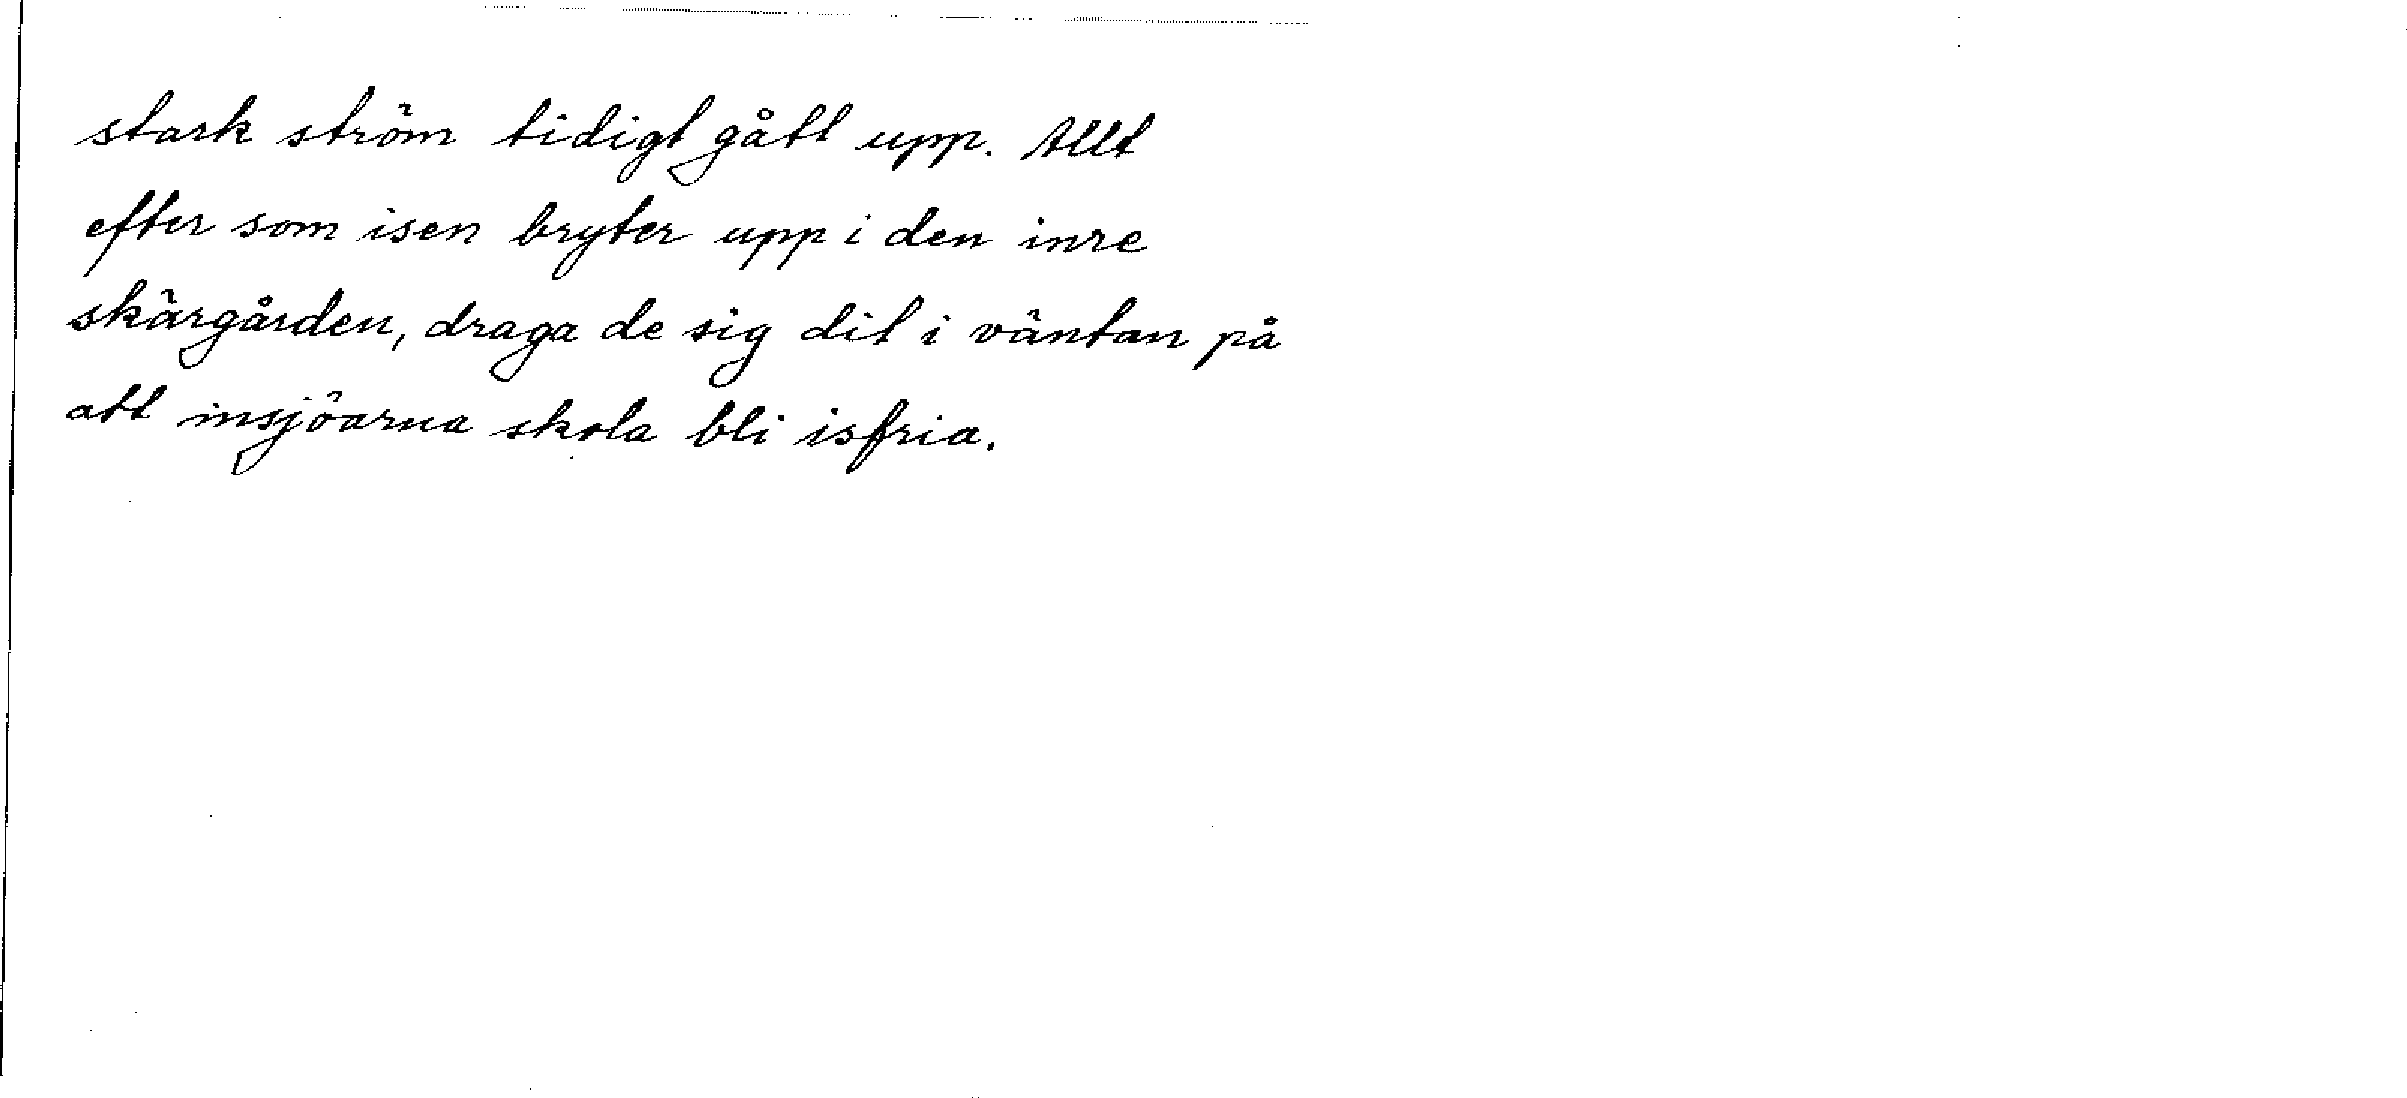 stark ström tidigt gått upp. Allt
efter som isen bryter upp i den inre
skärgården, draga de sig dit i väntan på
att insjöarna skola bli isfria.